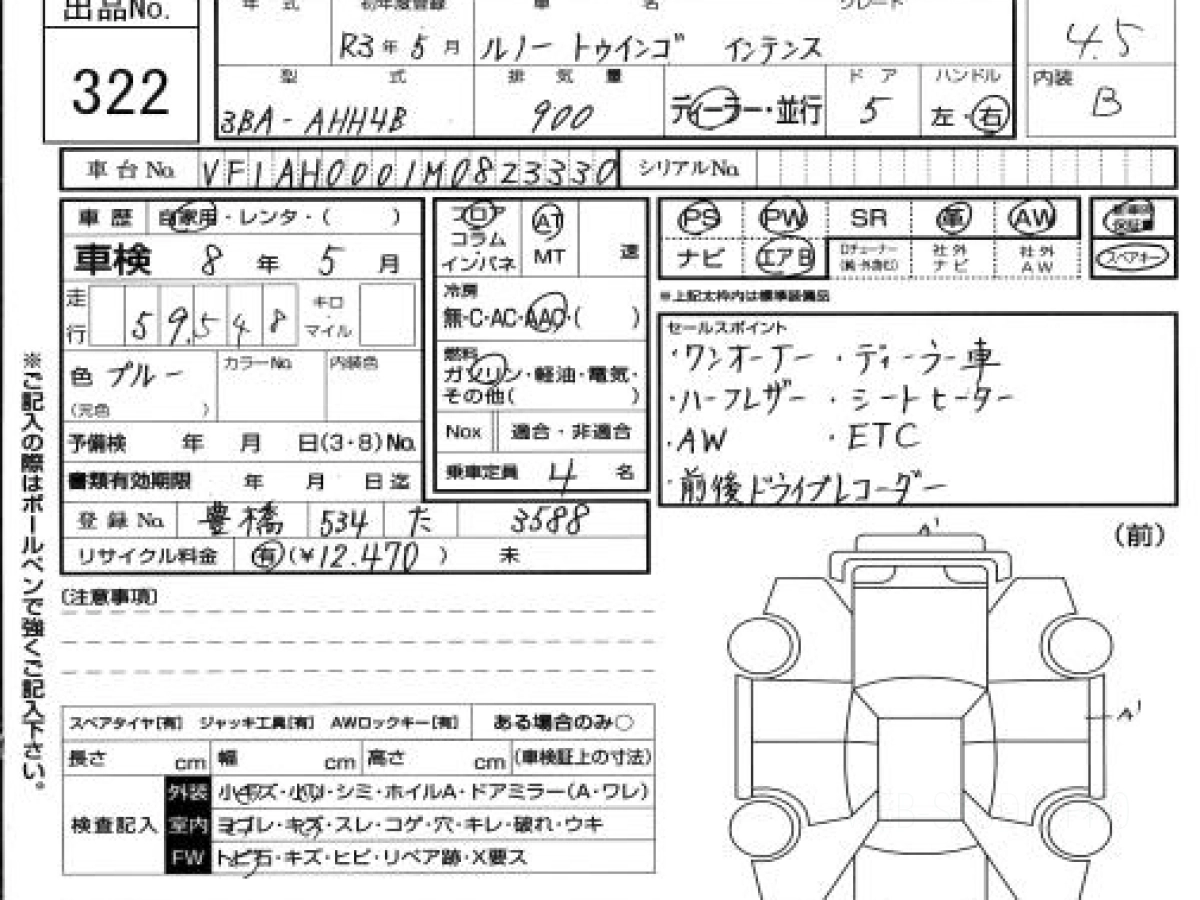 出品No.
322
年 式 初年度登録 車 名 グレード
R3年 5月 ルノー トゥインゴ インテンス
4.5
型 式 排 気 量 ドア ハンドル
3BA-AHH4B 900 ディーラー・並行 5 左・右
内装 B
車台No. VF1AH0001M0823330 シリアルNo.
車歴 自家用・レンタ・( )
車検 8年 5月
走行 59,548 キロ・マイル
色 ブルー カラーNo. 内装色
(元色 )
予備検 年 月 日(3・8)No.
書類有効期限 年 月 日迄
登録No. 豊橋 534 た 3588
リサイクル料金 有(¥12,470 ) 未
フロア
コラム
インパネ
AT
MT 速
冷房
無・C・AC・AAC・( )
燃料
ガソリン・軽油・電気・
その他( )
Nox 適合・非適合
乗車定員 4 名
PS PW SR 革 AW
ナビ エアB
社外ナビ
社外AW
保証書
スペアキー
※上記太枠内は標準装備品
セールスポイント
・ワンオーナー ・ディーラー車
・ハーフレザー ・シートヒーター
・AW ・ETC
・前後ドライブレコーダー
(前)
A'
A'
※ご記入の際はボールペンで強くご記入下さい。
〔注意事項〕
スペアタイヤ[有] ジャッキ工具[有] AWロックキー[有] ある場合のみ○
長さ cm 幅 cm 高さ cm (車検証上の寸法)
検査記入
外装 小キズ・小凹・シミ・ホイルA・ドアミラー(A・ワレ)
室内 ヨゴレ・キズ・スレ・コゲ・穴・キレ・破れ・ウキ
FW トビ石・キズ・ヒビ・リペア跡・X要ス